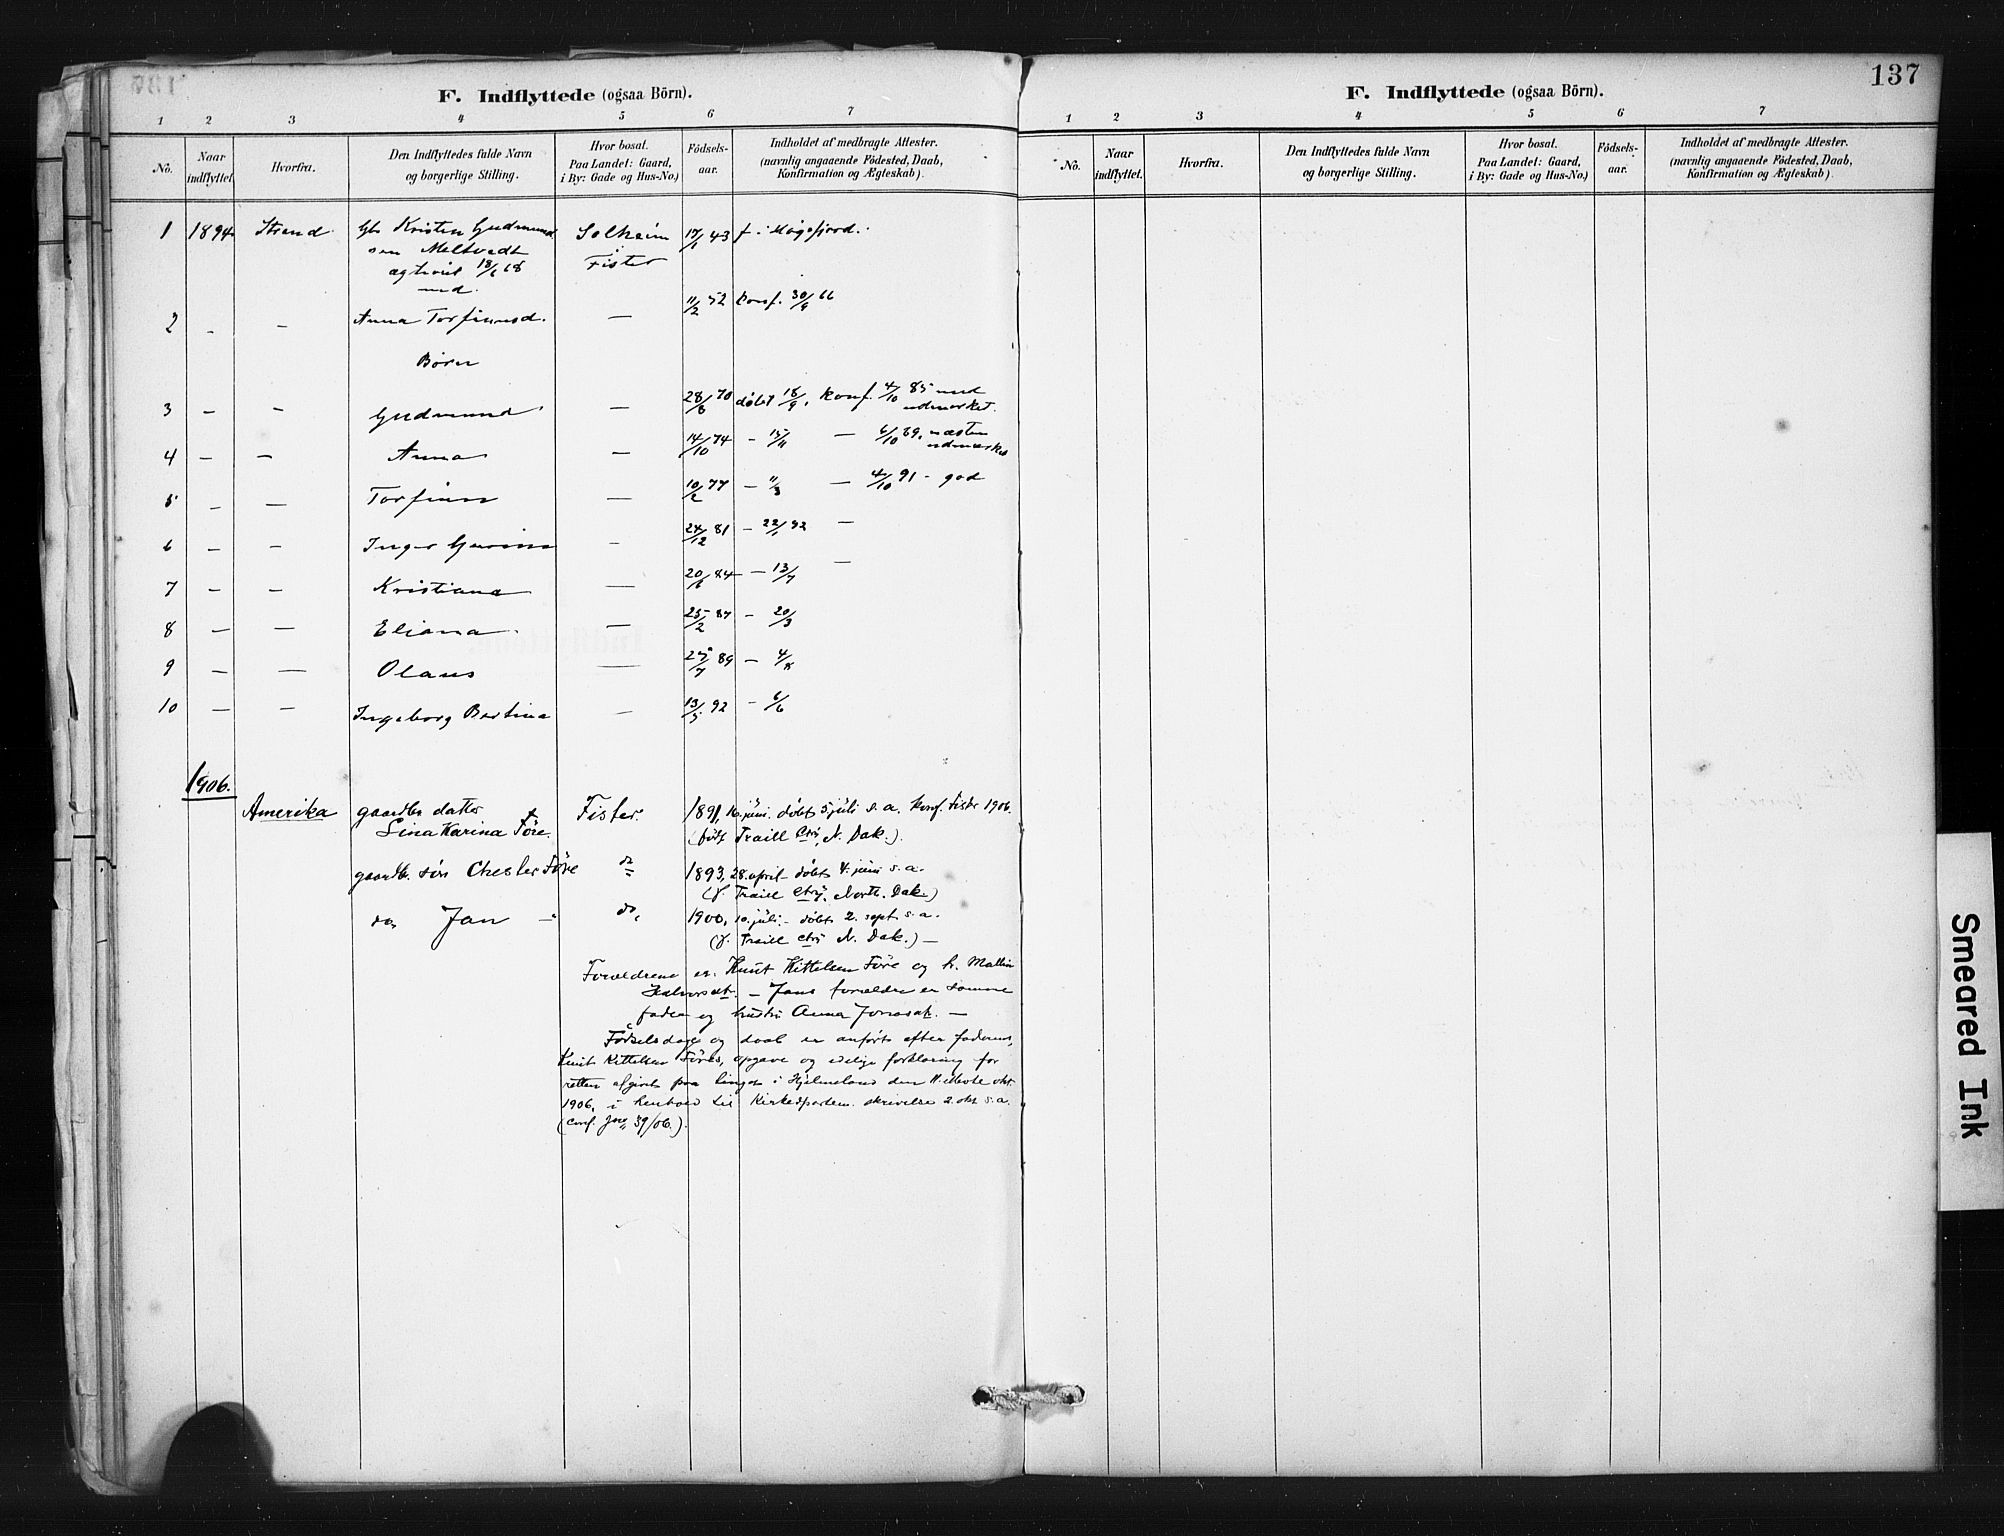 F. Indflyttede (ogsaa Börn).
1 2 3 4 5 6 7
No. Naar indflyttet. Hvorfra. Den Indflyttedes fulde Navn og borgerlige Stilling. Hvor bosat. Paa Landet: Gaard, i By: Gade og Hus-No.) Födsels-aar. Indholdet af medbragte Attester. (navnlig angaaende Födested, Daab, Konfirmation og Ægteskab).
1 1894 Strand Gbr Kristen Gudmund Solheim 17/1 43 f. i Høgsfjord.
sen Meltvedt Fister
ægteviet 18/6 68
med
2 - - Anna Torfinnsd. — 11/2 52 konf. 30/9 66
Børn
3 - - Gudmund — 28/8 70 døbt 18/9, konf. 4/10 85 med udmerket.
4 — - Anna — 14/10 74 - 15/11 — 6/10 89, næsten udmærket
5 - — Torfinn — 10/2 77 - 11/3 — 4/10 91 - god
6 - - Inger Gurina - 24/12 81 - 22/1 82 —
7 - - Kristiana — 20/6 84 - 13/7 —
8 - — Eliana — 25/2 87 - 20/3
9 - — Olaus — 25/7 89 - 4/8
10 — — Ingeborg Bertina — 13/5 92 - 6/6
1906.
Amerika gaardbr datter Fister. 1891, 16. juni. døbt 5 juli s. a. konf. Fister 1906.
Lina Karina Före. (født Traill Cty, N. Dak.).
gaardbr. søn Chester Före do 1893, 28. april - døbt 4. juni s. a.
(f. Traill Cty. North. Dak.)
do Jan —" do, 1900, 10. juli - døbt 2. sept s. a.
(f. Traill Cty N. Dak.) —
Forældrene er: Knut Kittelsen Före og h. Mallin
Halvorsdt. — Jans forældre er samme
fader og hustru Anna Jonasdt. —
Fødselsdage og daab er anført efter faderens,
Knut Kittelsen Føres, opgave og edelige forklaring for
retten afgivet paa tinget i Hjelmeland den 11. okt.
1906, i henhold til Kirkedpartem. skrivelse 2. okt s. a.
(conf. Jnr 39/06.).
137
F. Indflyttede (ogsaa Börn).
1 2 3 4 5 6 7
No. Naar indflyttet. Hvorfra. Den Indflyttedes fulde Navn og borgerlige Stilling. Hvor bosat. Paa Landet: Gaard, i By: Gade og Hus-No.) Födsels-aar. Indholdet af medbragte Attester. (navnlig angaaende Födested, Daab, Konfirmation og Ægteskab).
Smeared Ink